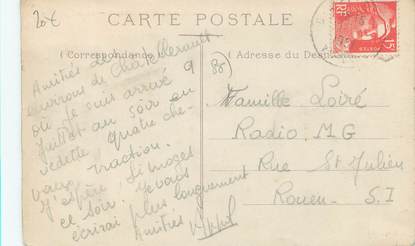 20€
CARTE POSTALE
(Correspondance)
(Adresse du Dest
Amitiés de
environs de Chatellerault
où je suis arrivé 9
Juillet au soir en
vedette quatre che-
vaux traction.
J'espère Limoges
ce soir. Je vous
écrirai plus longuement
Amitiés
(86)
Famille Loiré
Radio. M G
Rue St Julien
Rouen. S. I
15F
POSTES